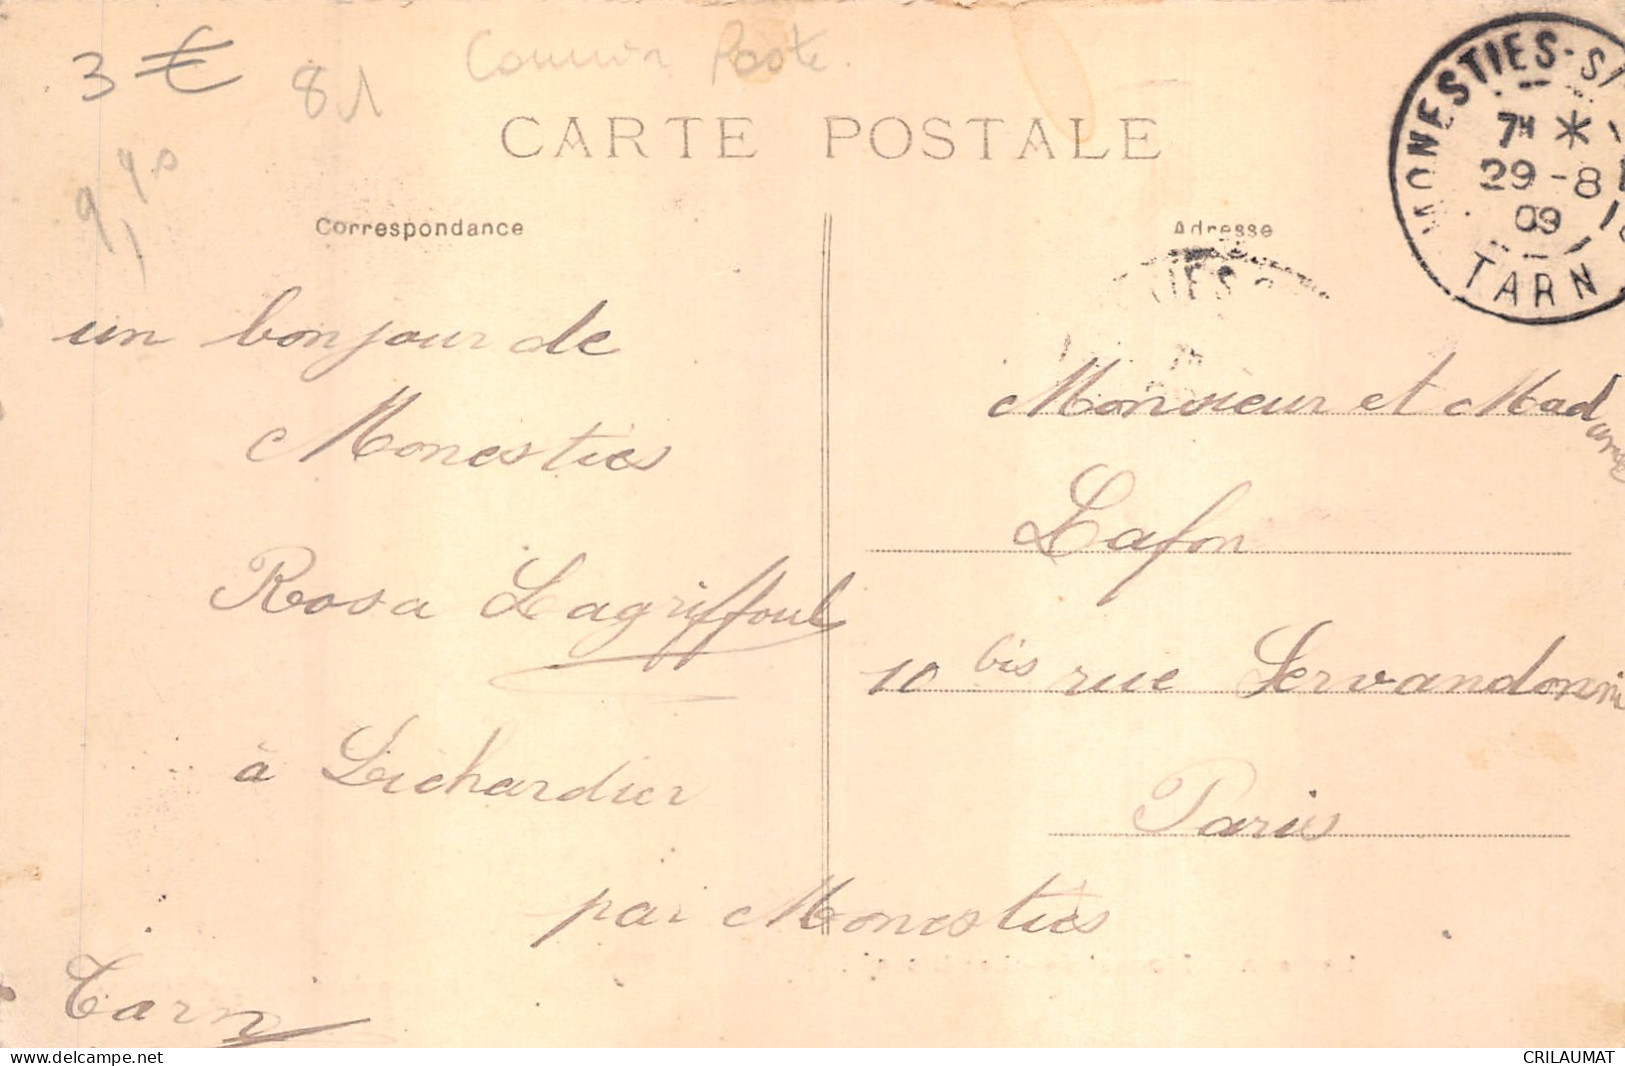 3 €
81
Courrier Poste.
CARTE POSTALE
MONESTIES-S/
7H *
29-8
09
TARN
Correspondance
Adresse
un bonjour de
Monesties
Rosa Lagriffoul
à Lichardier
par Monesties
Tarn
Monsieur et Madame
Lafon
10 bis rue Servandonni
Paris
delcampe.net
CRILAUMAT